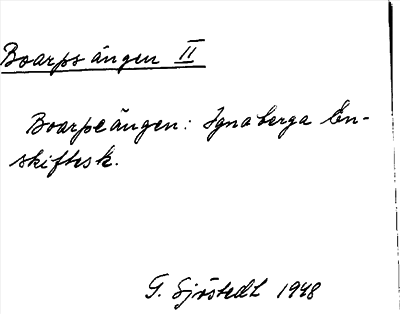 Boarpsängen II
Boarpeängen: Ignaberga En-
skiftesk.
G. Sjöstedt 1948